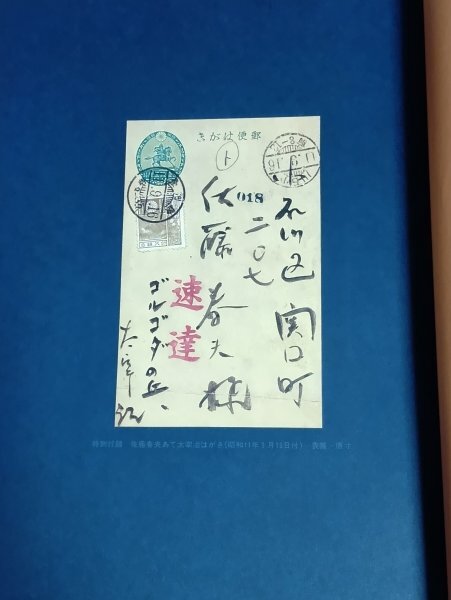 郵便はがき
ト
018
小石川区 関口町
二〇七
佐藤春夫様
速達
ゴルゴダの丘、
太宰治
特別付録 佐藤春夫あて太宰治はがき(昭和11年9月 日付) 表面・原寸